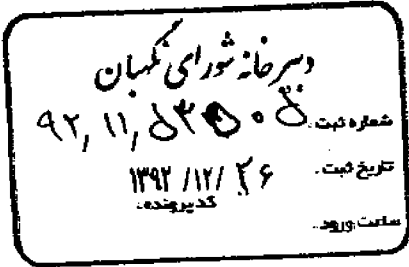 دبیرخانه شورای نگهبان
شماره ثبت:
تاریخ ثبت: ۱۳۹۲/۱۲/۲۶
کدپرونده:
ساعت ورود: